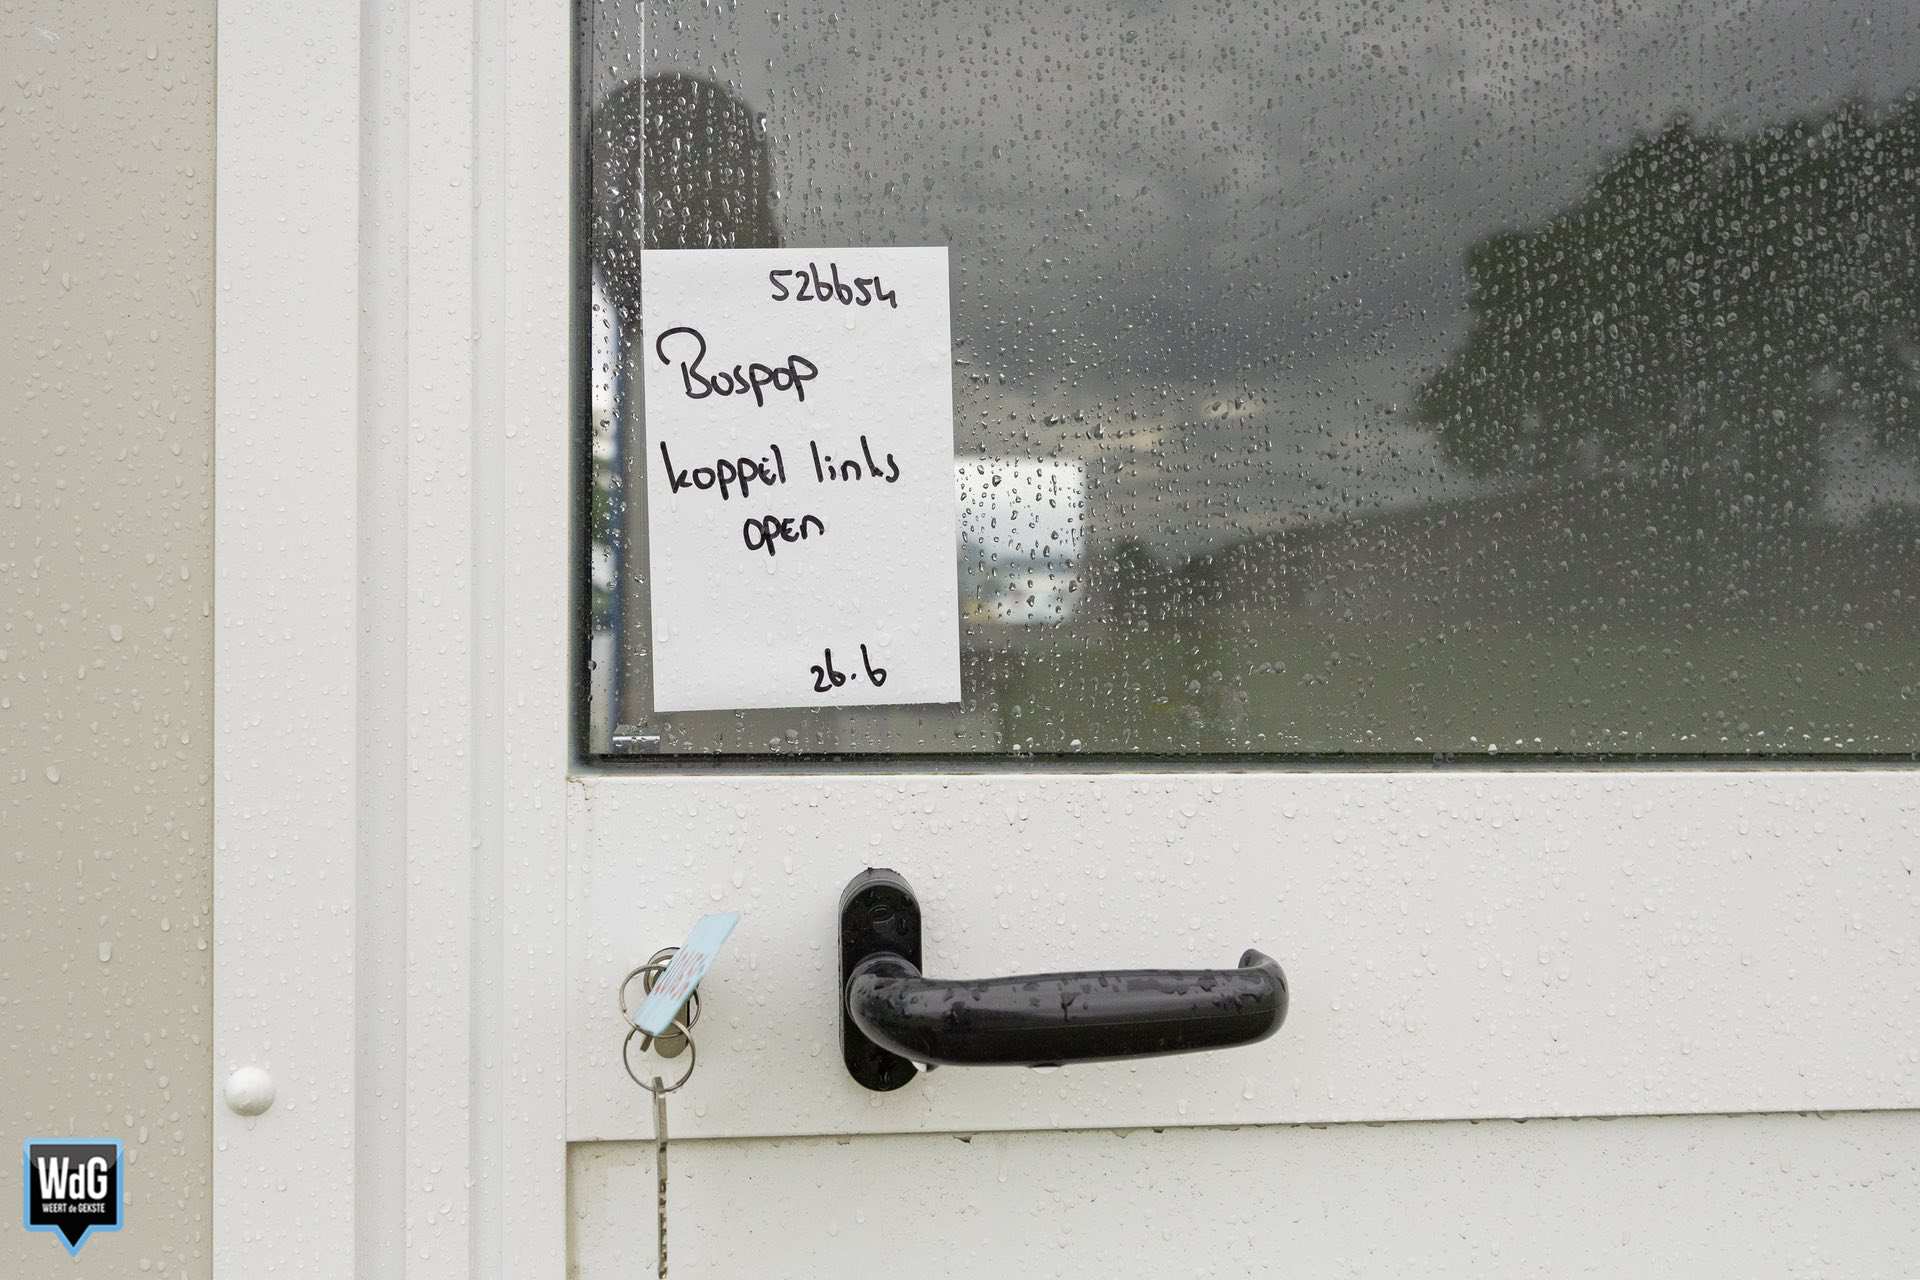 526654
Bospop
koppel links
open
26.6
WdG
WEERT de GEKSTE